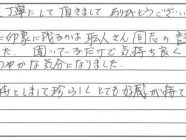 丁寧にして頂きまして ありがとうござい
に印象に残るのは 職人さん同志の
た. 聞いているだけで気持ち良く
やかな気分になりました.
としまして珍らしくとても好感が持て